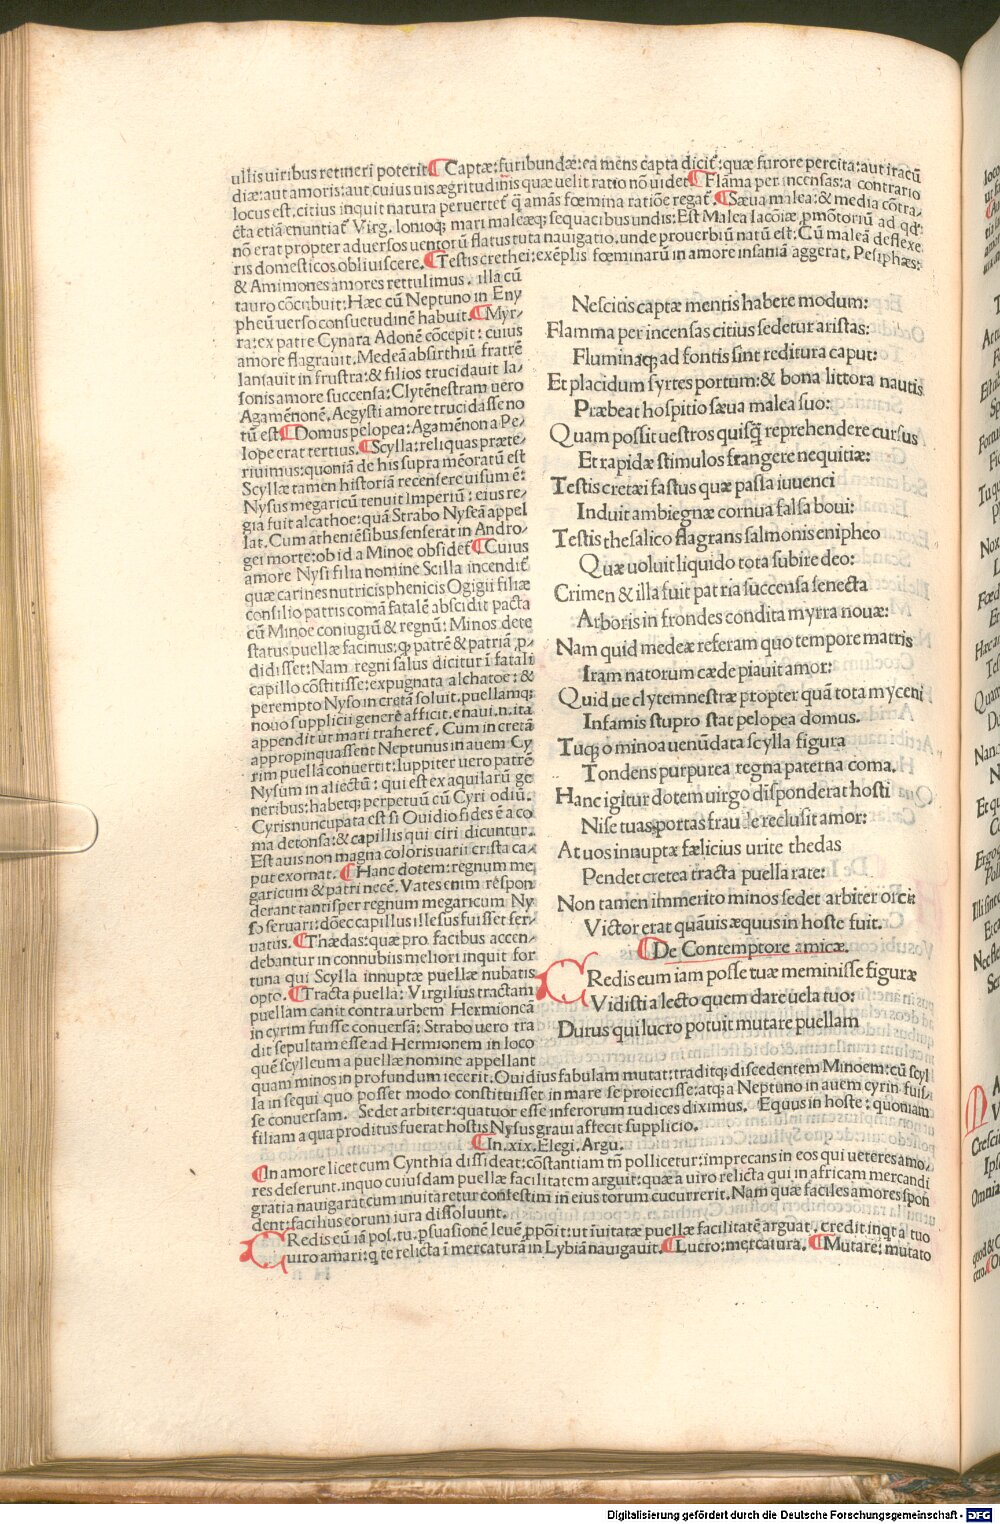 ullis uiribus retineri poterit ¶ Captæ: furibundæ: ea mens capta dicit᷑: quæ furore percita: aut iracū
diæ: aut amoris: aut cuius uis ægritudinis quæ uelit ratio nō uidet ¶ Flāma per incensas: a contrario
locus est. citius inquit natura peruertet᷑ q̄ amās fœmina ratiōe regat᷑. ¶ Sæua malea: & media cōtra,
cta etiā enuntiat᷑ Virg. Ionioq; mari maleæq; sequacibus undis: Est Malea Iacōiæ ꝓmōtoriū ad qd̄:
nō erat propter aduersos uentorū flatus tuta nauigatio. unde prouerbiū natū est: Cū maleā deflexe
ris domesticos obliuiscere. ¶ Testis crethei: exēplis fœminarū in amore insaniā aggerat. Pesiphaes:
& Amimones amores rettulimus. illa cū
tauro cōcubuit: Hæc cū Neptuno in Eny
pheū uerso consuetudinē habuit. ¶ Myr-
ra: ex patre Cynara Adonē cōcepit: cuius
amore flagrauit. Medeā absirthiū fratrē
laniauit in frustra: & filios trucidauit Ia-
sonis amore succensa: Clytēnestram uero
Agamēnonē. Aegysti amore trucidasse no
tū est ¶ Domus pelopea: Agamēnon a Pe-
lope erat tertius. ¶ Scylla: reliquas præte-
riuimus: quoniā de his supra mēoratū est
Scyllæ tamen historiā recensere uisum ē:
Nysus megaricū tenuit Imperiū: eius re-
gia fuit alcathoe: quā Strabo Nyseā appel
lat. Cum athenienſibus senserāt in Andro-
gei morte: ob id a Minoe obsidet᷑ ¶ Cuius
amore Nysi filia nomine Scilla incendit᷑
quæ carines nutricis phenicis Ogigii filiæ
consilio patris comā fatalē abscidit pacta
cū Minoe coniugiū & regnū: Minos dete
status puellæ facinus: qꝫ patrē & patriā ꝓ-
didisset: Nam regni salus dicitur ī fatali
capillo cōstitisse: expugnata alchatoe: &
perempto Nyso in cretā soluit. puellamq;
nouo supplicii genere afficit. e naui .n. ita
appendit ut mari traheret᷑. Cum in cretā
appropinquassent Neptunus in auem Cy
rim puellā conuertit: Iuppiter uero patrē
Nysum in aliectū: qui est ex aquilarū ge
neribus: habetq; perpetuū cū Cyri odiū.
Cyris nuncupata est si Ouidio fides ē a co
ma detonsa: & capillis qui ciri dicuntur.
Est auis non magna coloris uarii crista ca-
put exornat. ¶ Hanc dotem: regnum me
garicum & patri necē. Vates enim respon
derant tantisper regnum megaricum Ny
so seruari: dōec capillus illesus fuisset ser-
uatus. ¶ Thædas: quæ pro facibus accen-
debantur in connubiis meliori inquit for
tuna qui Scylla innuptæ puellæ nubatis
opto. ¶ Tracta puella: Virgilius tractam
puellam canit contra urbem Hermioneā
in cyrim fuisse conuersā: Strabo uero tra
dit sepultam esse ad Hermionem in loco
quē scylleum a puellæ nomine appellant
quam minos in profundum iecerit. Ouidius fabulam mutat: traditq; discedentem Minoem: cū scyl
la insequi quo posset modo constituisset in mare se proiecisse: atq; a Neptuno in auem cyrin fuis-
se conuersam. Sedet arbiter: quatuor esse inferorum iudices diximus. Equus in hoste: quoniam
filiam a qua proditus fuerat hostis Nysus graui affecit supplicio.
Nescitis captæ mentis habere modum:
Flamma per incensas citius sedetur aristas:
Fluminaq; ad fontis sint reditura caput:
Et placidum syrtes portum: & bona littora nautis
Præbeat hospitio sæua malea suo:
Quam possit uestros quisq̄ reprehendere cursus
Et rapidæ stimulos frangere nequitiæ:
Testis cretæi fastus quæ passa iuuenci
Induit ambiegnæ cornua falsa boui:
Testis thesalico flagrans salmonis enipheo
Quæ uoluit liquido tota subire deo:
Crimen & illa fuit patria succensa senecta
Arboris in frondes condita myrra nouæ:
Nam quid medeæ referam quo tempore matris
Iram natorum cæde piauit amor:
Quid ue clytemnestræ propter quā tota myceni
Infamis stupro stat pelopea domus.
Tuq; o minoa uenūdata scylla figura
Tondens purpurea regna paterna coma.
Hanc igitur dotem uirgo disponderat hosti
Nise tuas portas frau le reclusit amor:
At uos innuptæ fælicius urite thedas
Pendet cretea tracta puella rate:
Non tamen immerito minos sedet arbiter orcii
Victor erat quāuis æquus in hoste fuit.
¶ De Contemptore amicæ.
Credis eum iam posse tuæ meminisse figuræ
Vidisti a lecto quem dare uela tuo:
Durus qui lucro potuit mutare puellam
¶ In .xix. Elegi. Argu.
¶ In amore licet cum Cynthia dissideat: cōstantiam tn̄ pollicetur: imprecans in eos qui ueteres amo,
res deserunt. in quo cuiusdam puellæ facilitatem arguit: quæ a uiro relicta qui in africam mercandi
gratia nauigarat cum inuitaretur confestim in eius torum cucurrerit. Nam quæ faciles amores spon
dent: facilius eorum iura dissoluunt.
Credis eū iā pos. tu. ꝑsuasionē leuē ꝓpōit: ut īuitatæ puellæ facilitatē arguat. credit inqt a tuo
uiro amari: q te relicta ī mercaturā in Lybiā nauigauit. ¶ Lucro: mercatura. ¶ Mutare: mutato
Digitalisierung gefördert durch die Deutsche Forschungsgemeinschaft - DFG